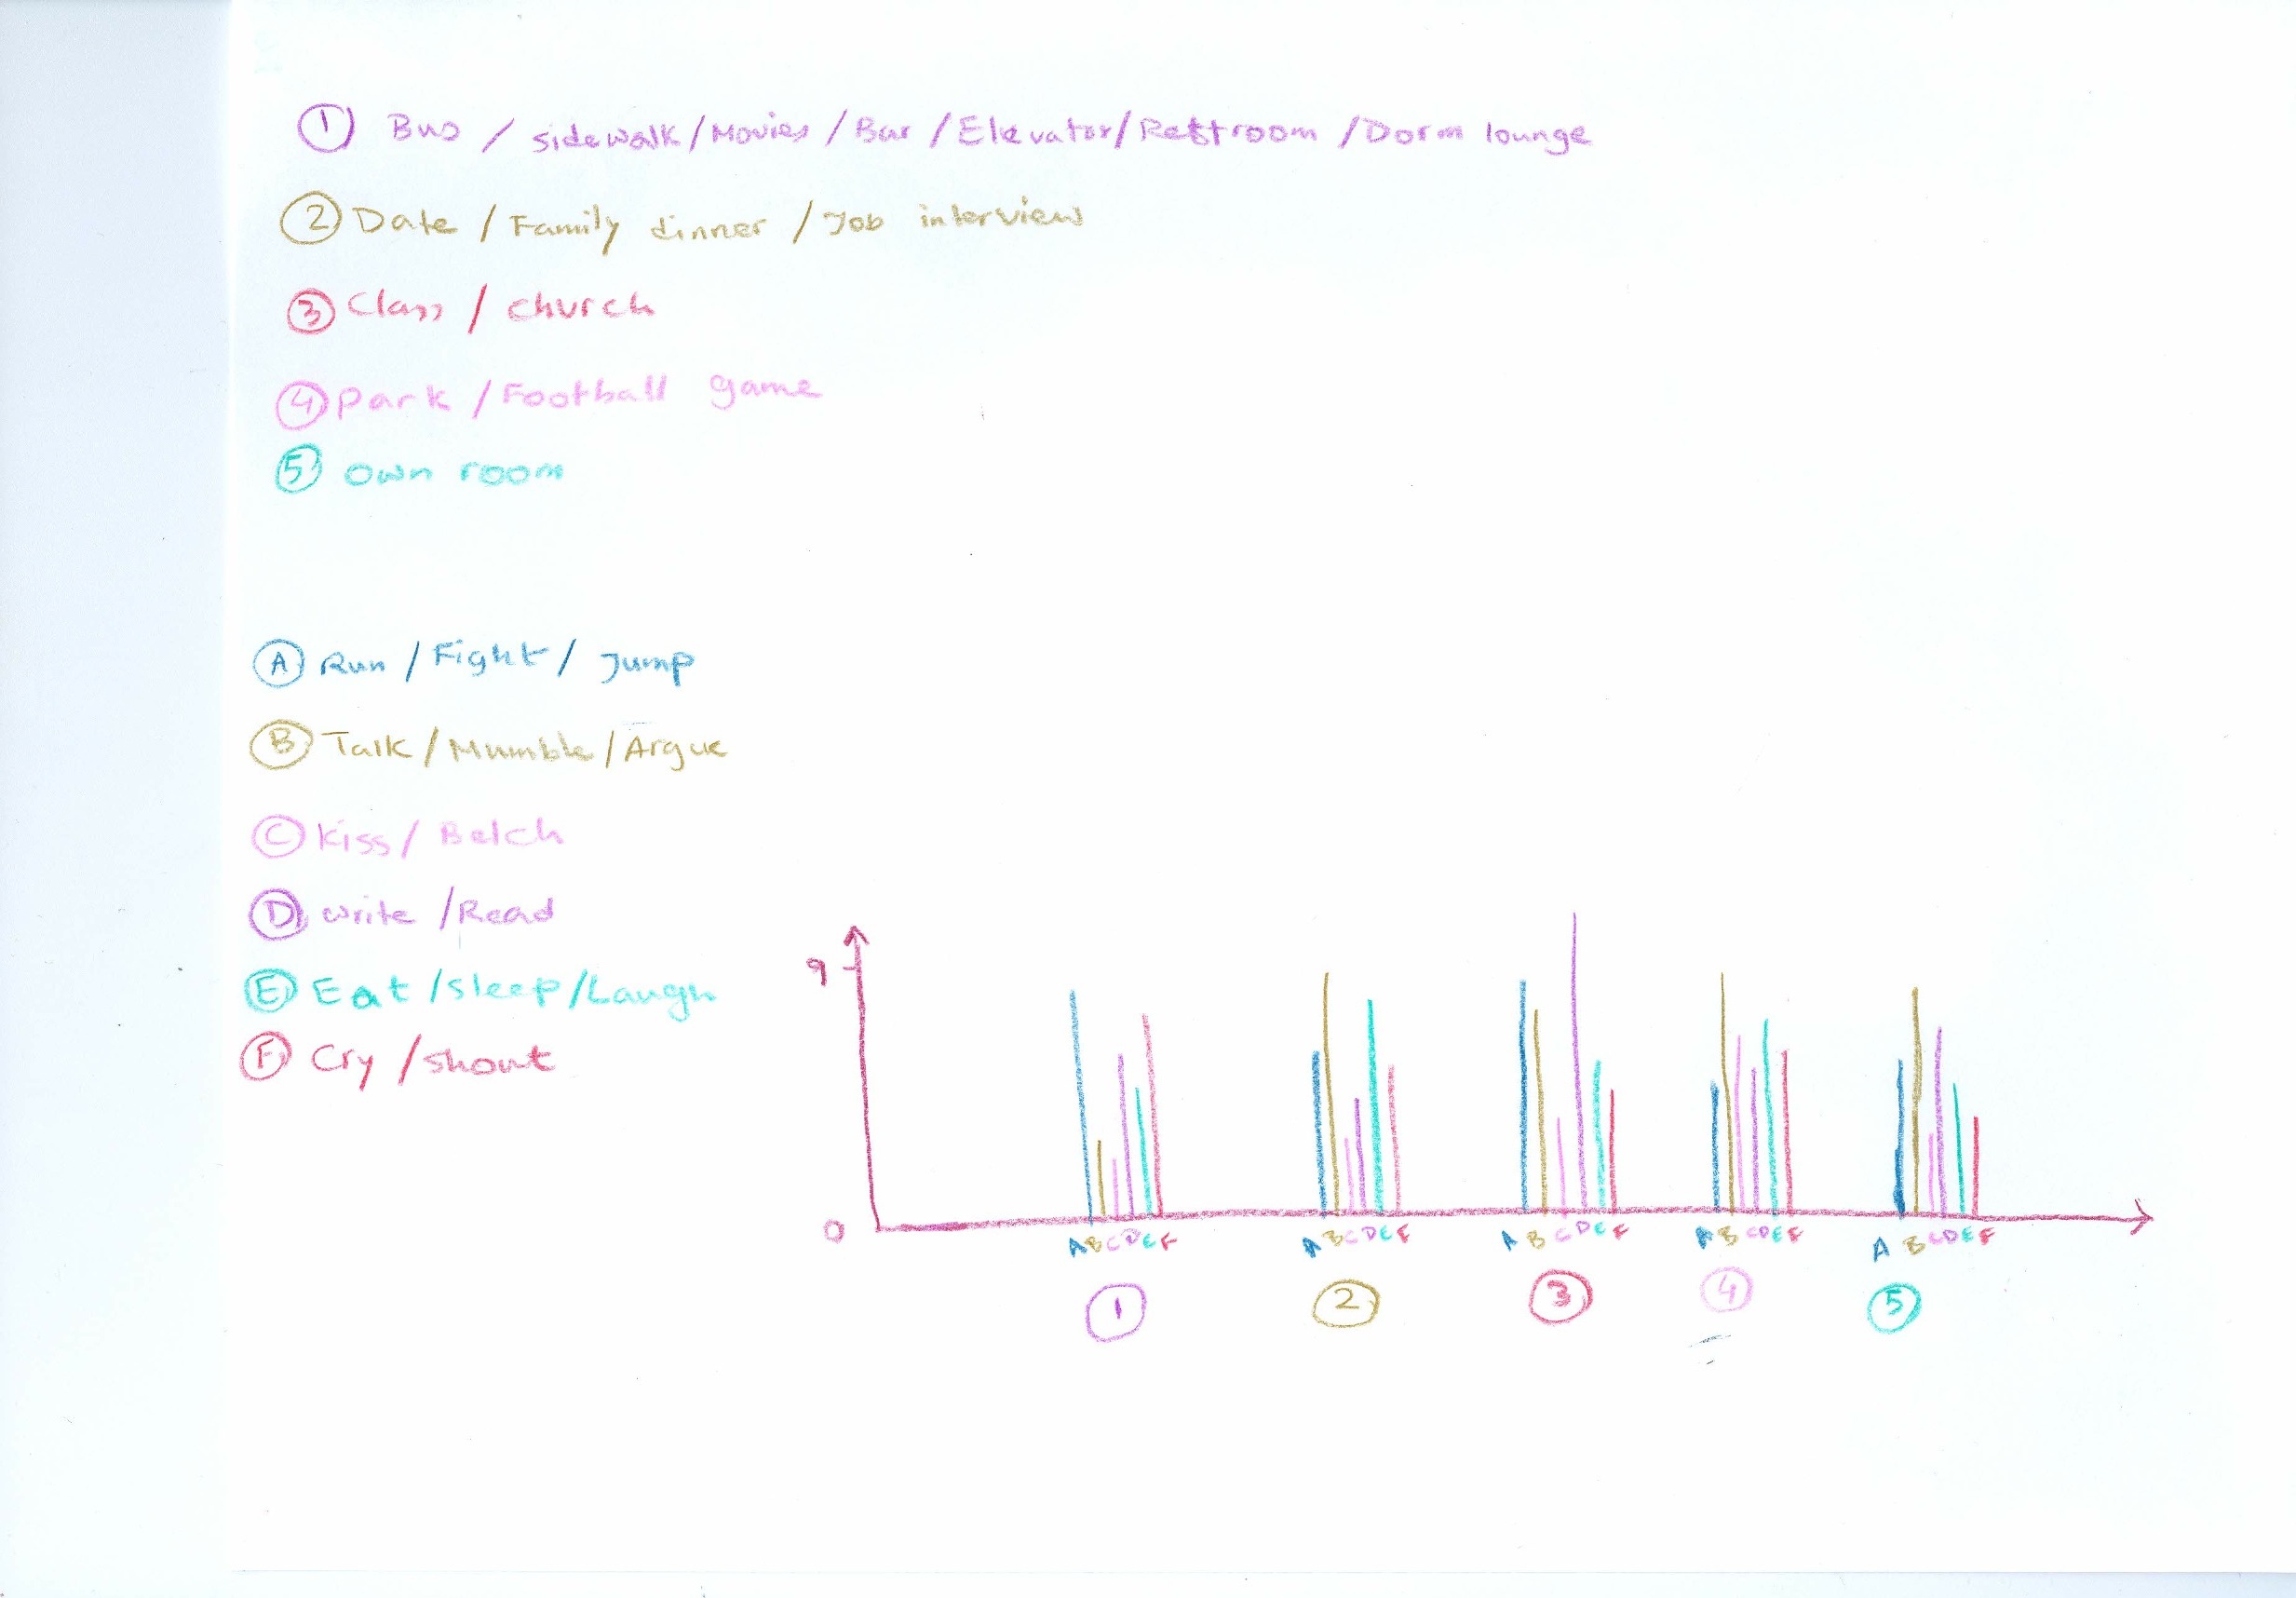 ① Bus / sidewalk / Movies / Bar / Elevator / Restroom / Dorm lounge
② Date / Family dinner / Job interview
③ Class / church
④ Park / Football game
⑤ Own room
Ⓐ Run / Fight / Jump
Ⓑ Talk / Mumble / Argue
Ⓒ Kiss / Belch
Ⓓ write / Read
Ⓔ Eat / sleep / Laugh
Ⓕ Cry / shout
9
0
A B C D E F A B C D E F A B C D E F A B C D E F A B C D E F
① ② ③ ④ ⑤